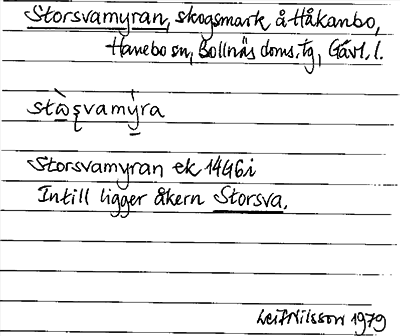 Storsvamyran, skogsmark å Håkanbo,
Hanebo sn, Bollnäs doms. tg, Gävl. l.
Storsvamyran ek 14G6i
Intill ligger åkern Storsva.
Leif Nilsson 1979